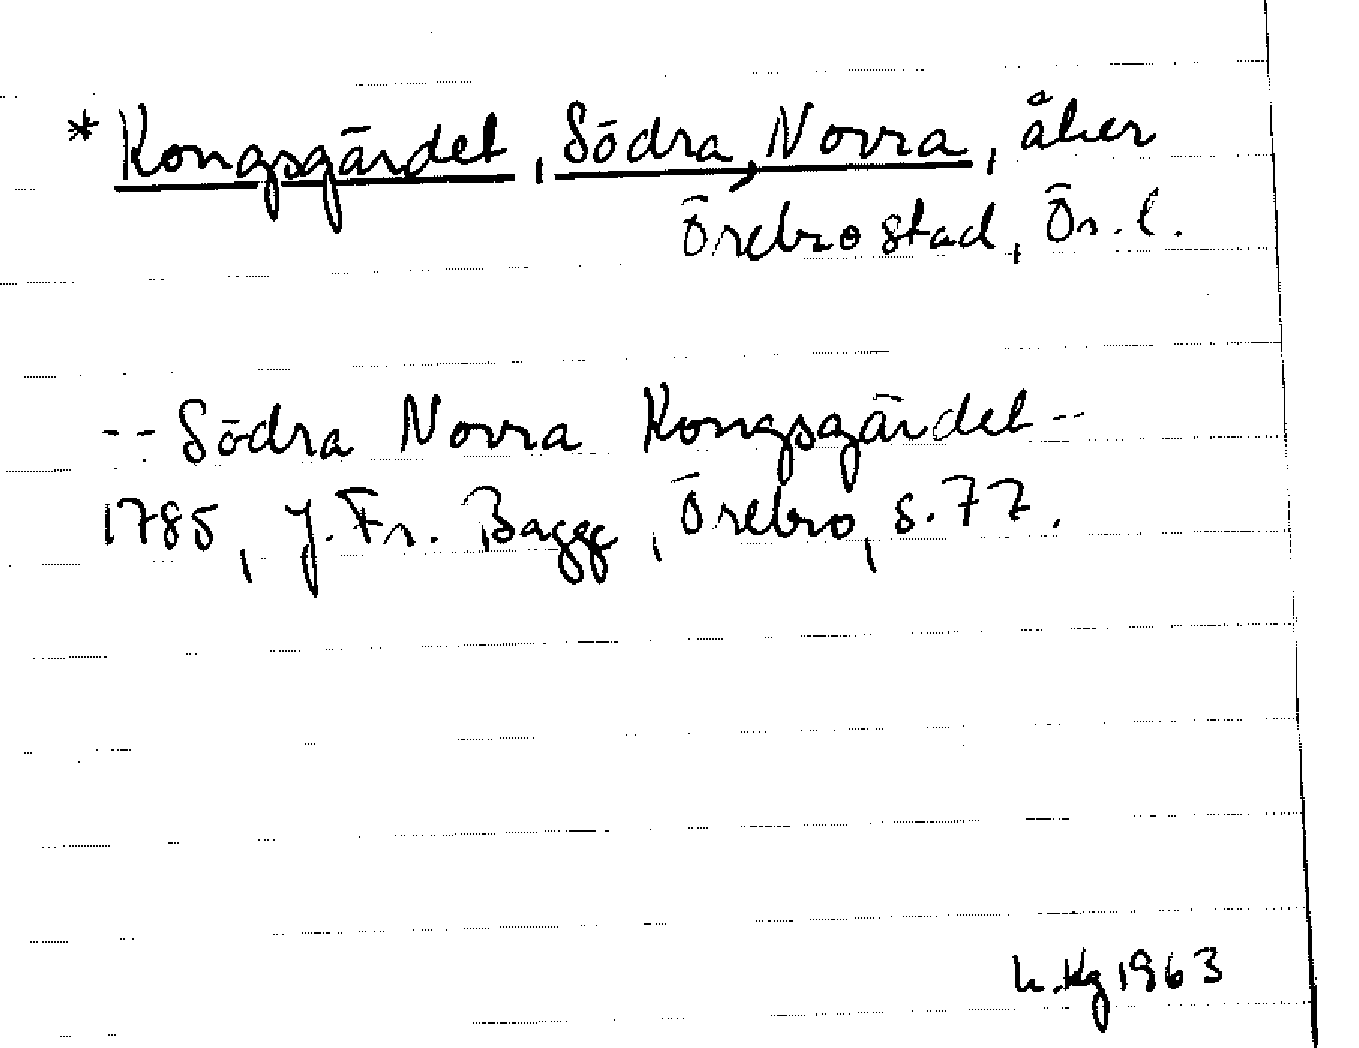 * Kongsgärdet, Södra, Norra, åker
Örebro stad, Ör. l.
-- Södra Norra Kongsgärdet --
1785, J. Fr. Bagge, Örebro, s. 77.
h. Kg 1963